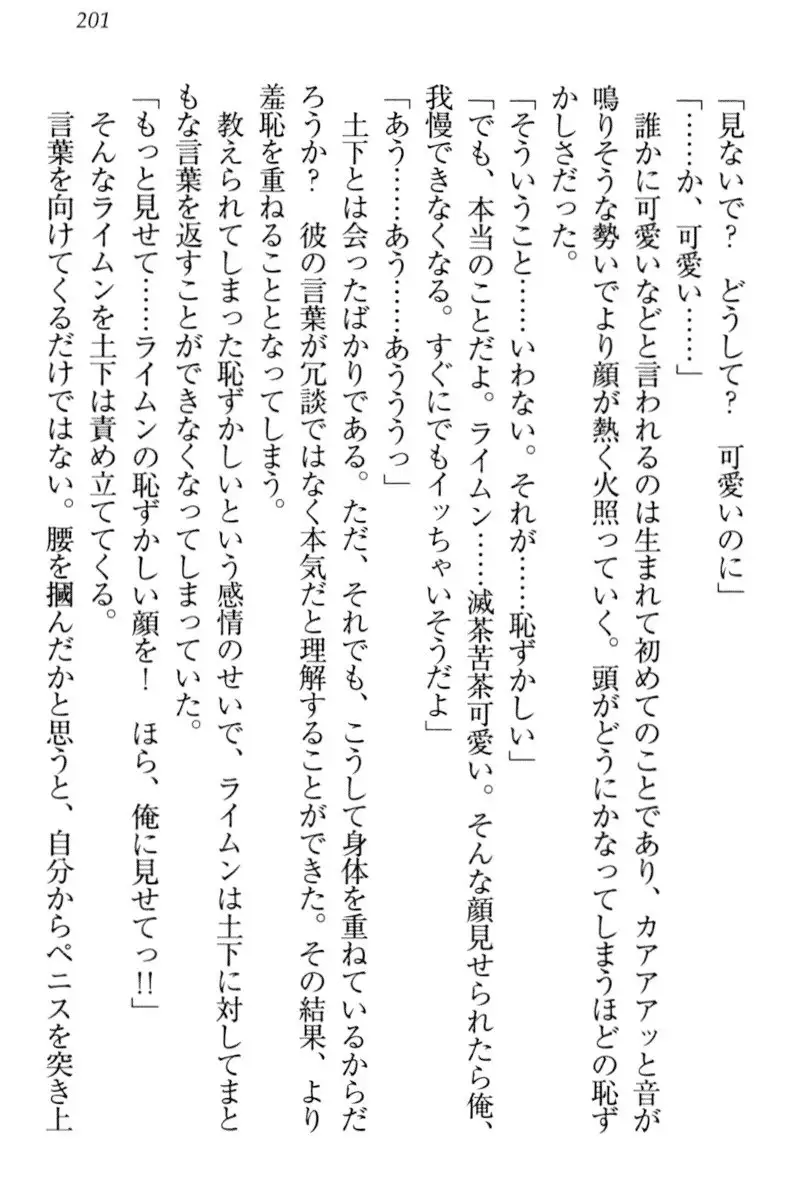 201
「見ないで？　どうして？　可愛いのに」
「……か、可愛い……」
　誰かに可愛いなどと言われるのは生まれて初めてのことであり、カアアアッと音が
鳴りそうな勢いでより顔が熱く火照っていく。頭がどうにかなってしまうほどの恥ず
かしさだった。
「そういうこと……いわない。それが……恥ずかしい」
「でも、本当のことだよ。ライムン……滅茶苦茶可愛い。そんな顔見せられたら俺、
我慢できなくなる。すぐにでもイッちゃいそうだよ」
「あう……あう……あうううっ」
　土下とは会ったばかりである。ただ、それでも、こうして身体を重ねているからだ
ろうか？　彼の言葉が冗談ではなく本気だと理解することができた。その結果、より
羞恥を重ねることとなってしまう。
　教えられてしまった恥ずかしいという感情のせいで、ライムンは土下に対してまと
もな言葉を返すことができなくなってしまっていた。
「もっと見せて……ライムンの恥ずかしい顔を！　ほら、俺に見せてっ!!」
　そんなライムンを土下は責め立ててくる。
　言葉を向けてくるだけではない。腰を摑んだかと思うと、自分からペニスを突き上